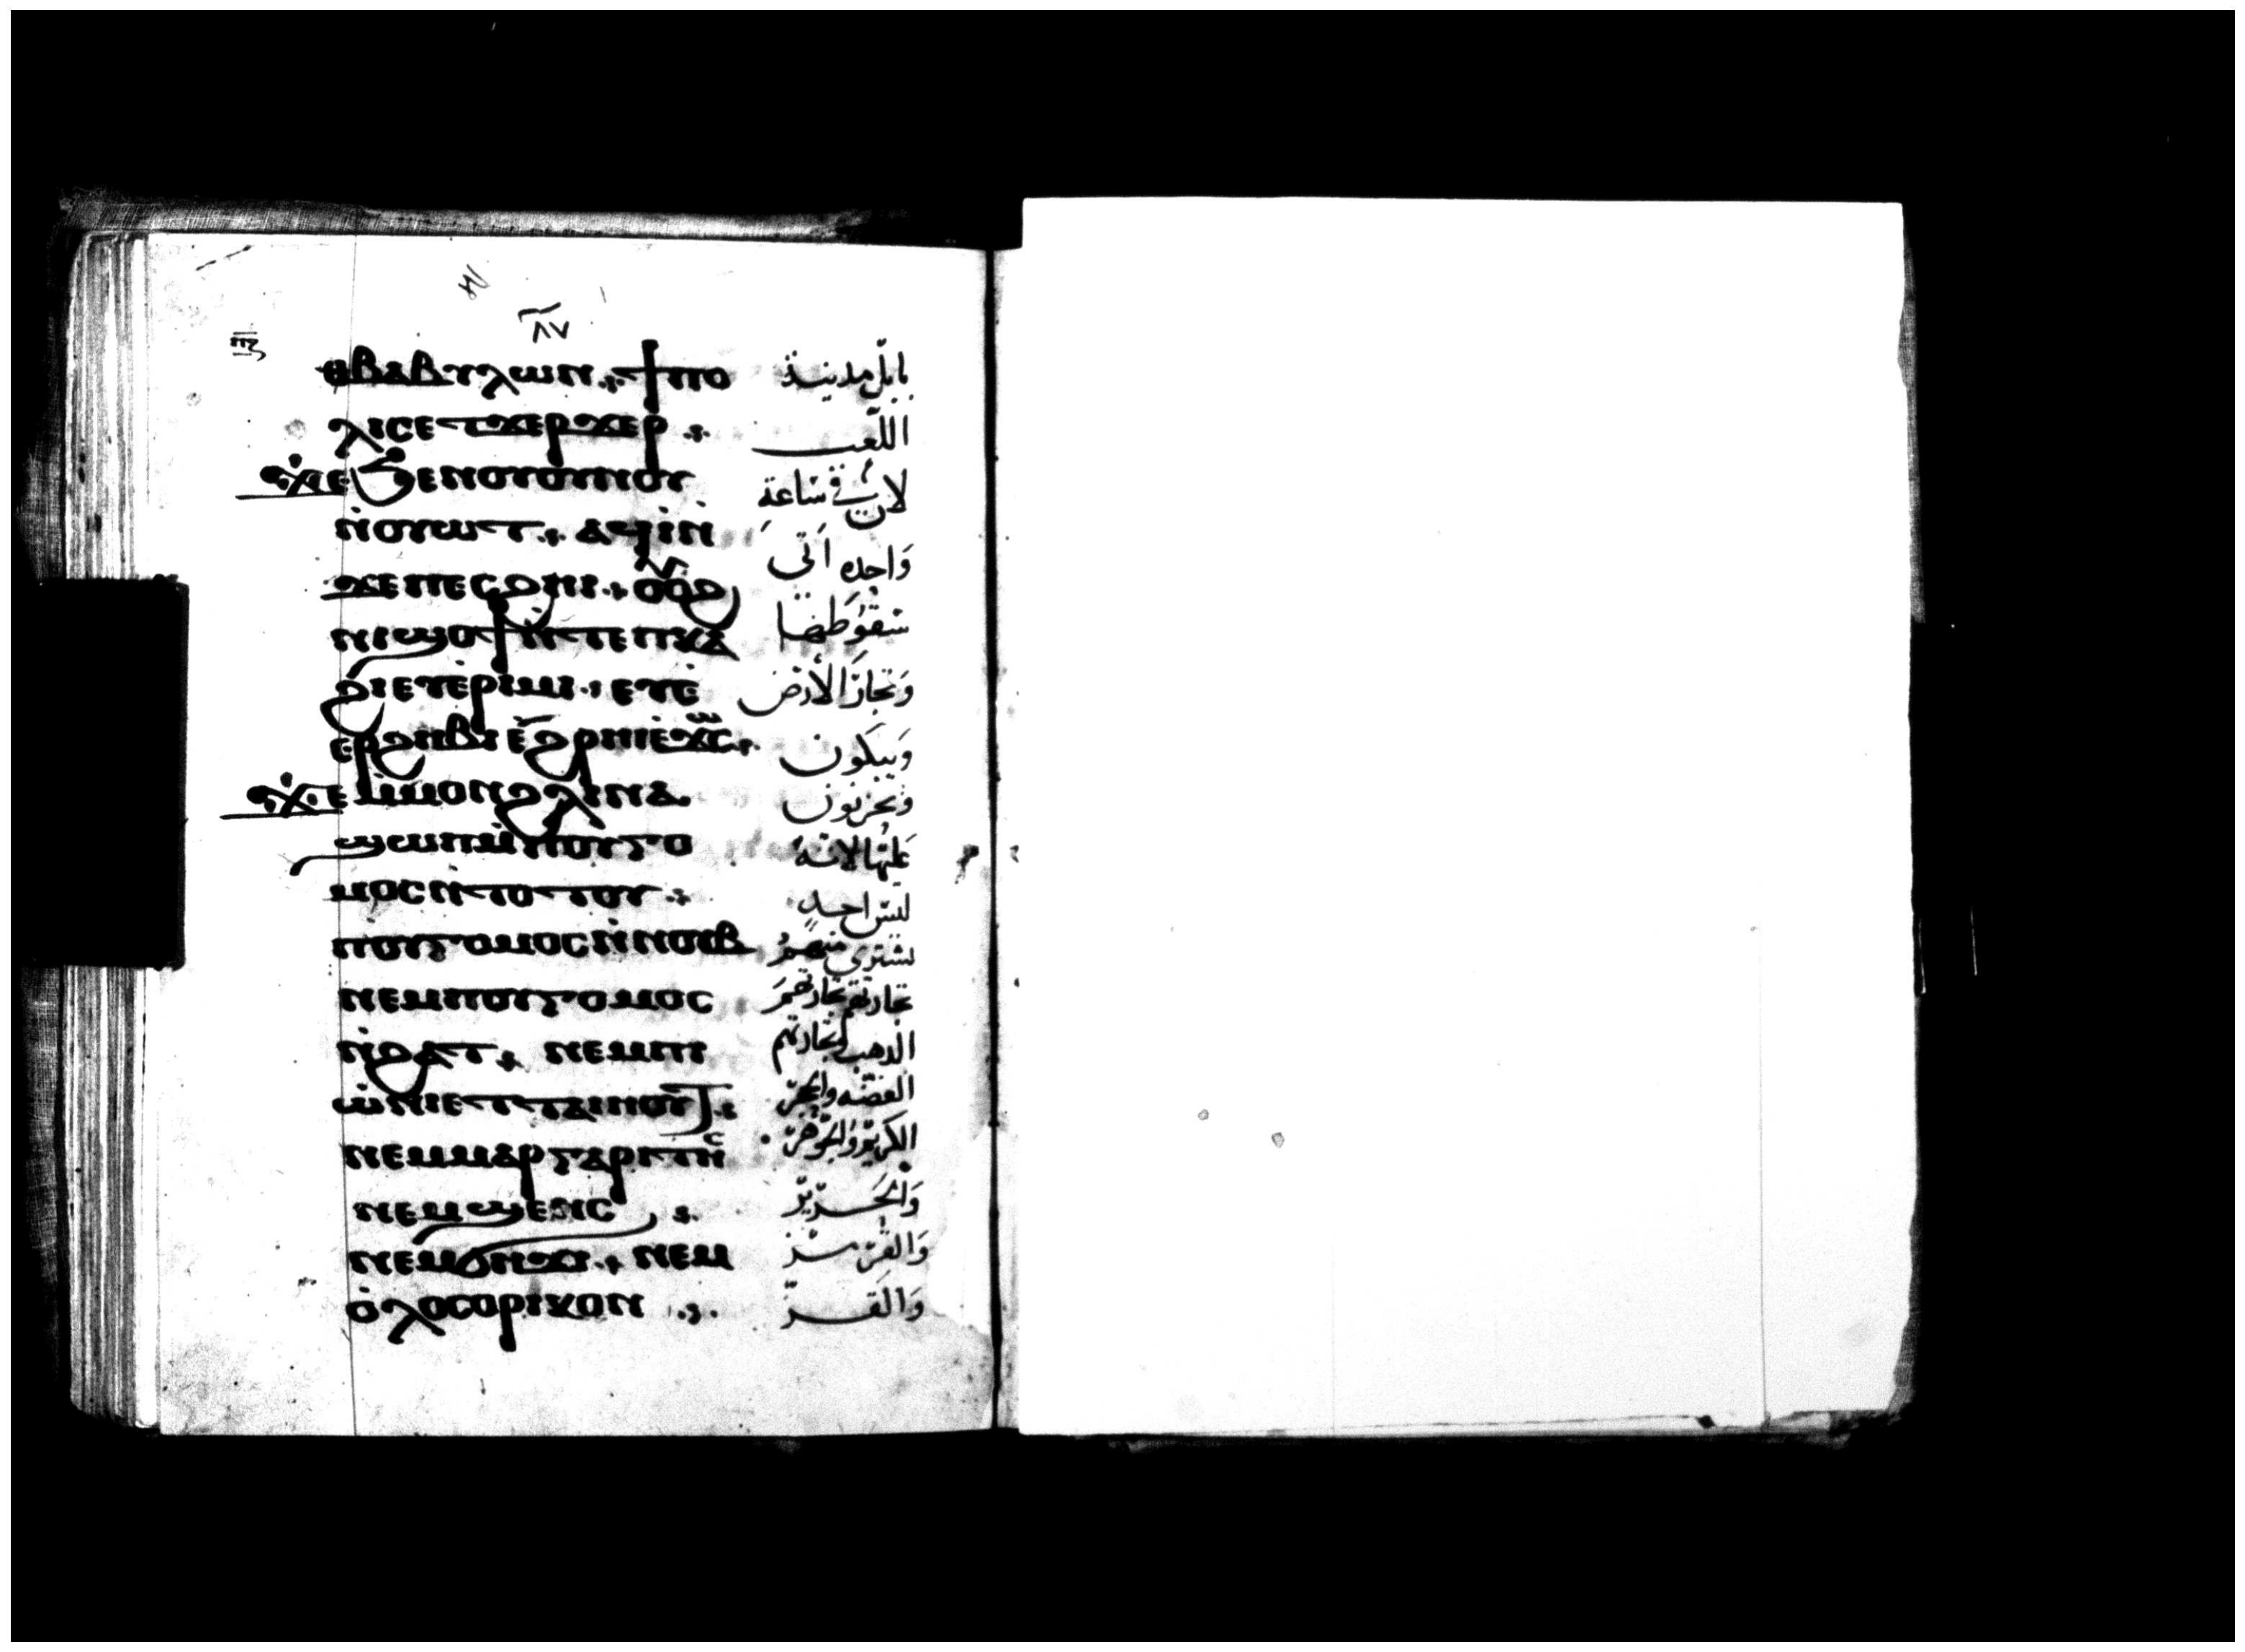 ٨٧
ⲉⲃⲁⲃⲩⲗⲱⲛ ϯⲡⲟ
ⲗⲓⲥ ⲉⲧϫⲉⲣϫⲉⲣ
ϫⲉ ϧⲉⲛ ⲟⲩⲟⲩⲛⲟⲩ
ⲛ̀ⲟⲩⲱⲧ ⲁϥⲓ̀ ⲛ̀
ϫⲉ ⲡⲉⲥϩⲁⲡ ⲟⲩⲟϩ
ⲛⲓⲉϣⲟϯ ⲛ̀ⲧⲉ ⲡⲕⲁ
ϩⲓ ⲉⲩⲉ̀ⲣⲓⲙⲓ ⲉⲩⲉ̀
ⲉⲣϩⲏⲃⲓ ⲉ̀ϩⲣⲏⲓ ⲉ̀ϫⲱⲥ
ϫⲉ ⲙ̀ⲙⲟⲛ ϩⲗⲓ ⲛⲁ
ϣⲱⲡ ⲙ̀ⲡⲟⲩⲅⲟ
ⲙⲟⲥ ⲛ̀ⲧⲟⲧⲟⲩ
ⲡⲟⲩⲅⲟⲙⲟⲥ ⲛ̀ⲛⲟⲩⲃ
ⲛⲉⲙ ⲡⲟⲩⲅⲟⲙⲟⲥ
ⲛ̀ϩⲁⲧ ⲛⲉⲙ ⲡⲓ
ⲱ̀ⲛⲓ ⲉⲧⲧⲁⲓⲏⲟⲩⲧ
ⲛⲉⲙ ⲙⲁⲣⲅⲁⲣⲓⲧⲏⲥ
ⲛⲉⲙ ϣⲉⲛⲥ
ⲛⲉⲙ ϭⲏϫⲓ ⲛⲉⲙ
ⲟ̀ⲗⲟⲥⲩⲣⲓⲕⲟⲛ
بابل مدينة
اللعب
لان في ساعة
واحده اتى
وتجار الارض
ويبكون
ويحزنون
عليها لانه
ليس احد
يشترى منهم
تجارتهم تجارتهم
الذهب تجارتهم
الفضه والحجر
الكريم والجوهر
والحرير
والقرمز
والقز